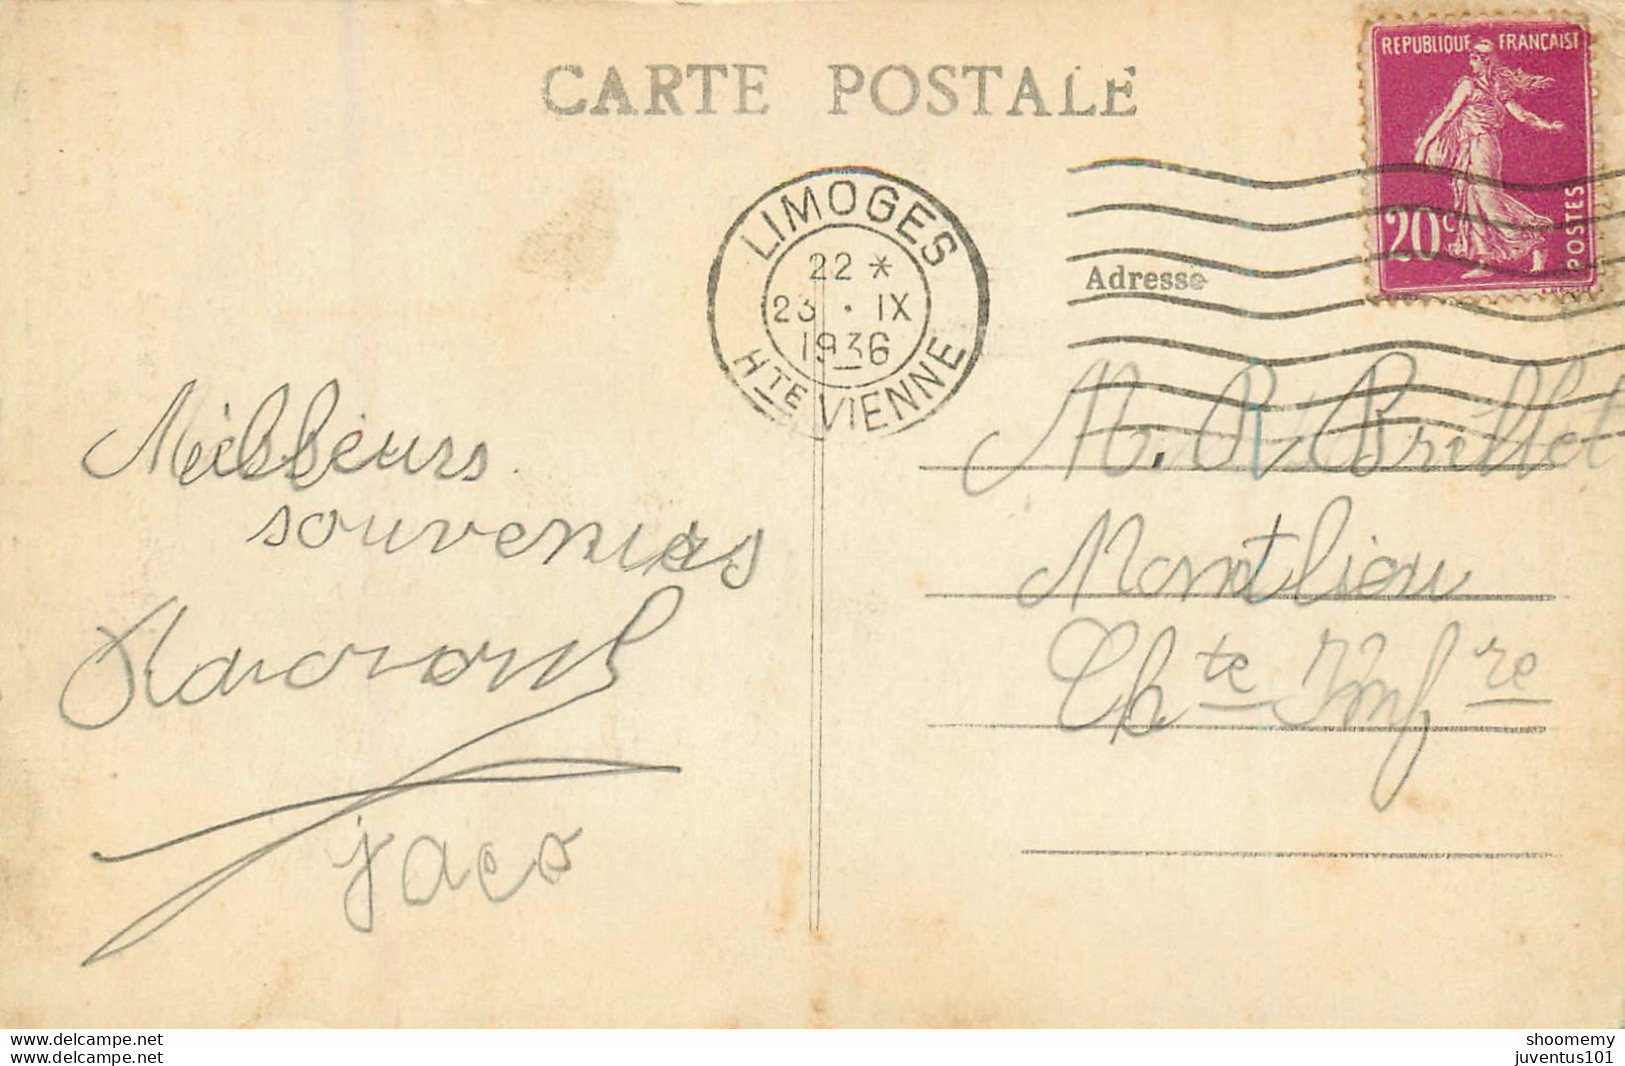 CARTE POSTALE
REPUBLIQUE FRANÇAISE
20c
POSTES
LIMOGES
22 *
23 · IX
1936
HTE VIENNE
Adresse
Meilleurs
souvenirs
jaco
M. R Brillet
Montlieu
Chte Infre
www.delcampe.net
www.delcampe.net
shoomemy
juventus101